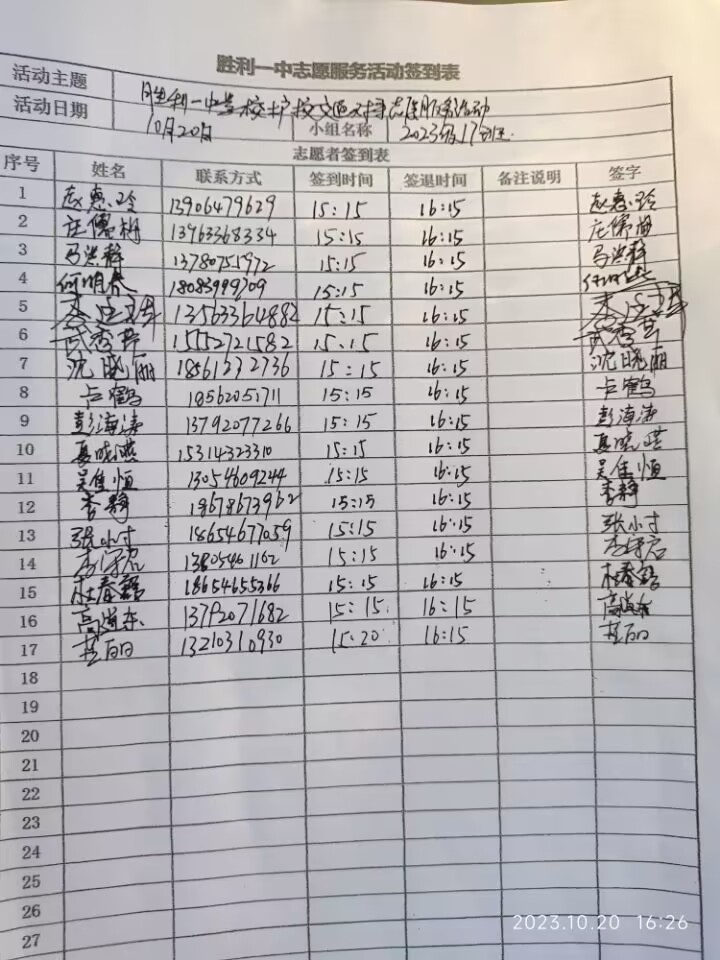 胜利一中志愿服务活动签到表
活动主题 胜利一中 校护 交通 志愿服务活动
活动日期 10月20日 小组名称 2023级17班
志愿者签到表
序号 姓名 联系方式 签到时间 签退时间 备注说明 签字
1 赵惠玲 13906479629 15:15 16:15 赵惠玲
2 庄儒 13963368334 15:15 16:15 庄儒
3 马洪科 13780751972 15:15 16:15 马洪科
4 何明春 18083999709 15:15 16:15
5 13563364882 15:15 16:15
6 武秀 15552721582 15:15 16:15 武秀
7 沈晓丽 18561232736 15:15 16:15 沈晓丽
8 卢鹤 18562051711 15:15 16:15 卢鹤
9 彭海涛 13792077266 15:15 16:15 彭海涛
10 夏晓燕 15314323310 15:15 16:15 夏晓燕
11 吴佳恒 13054609244 15:15 16:15 吴佳恒
12 李静 18678673962 15:15 16:15 李静
13 张小寸 18654677059 15:15 16:15 张小寸
14 13805461162 15:15 16:15
15 杜春 18654655366 15:15 16:15 杜春
16 高洪东 13792071682 15:15 16:15
17 13210310930 15:20 16:15
18
19
20
21
22
23
24
25
26
27
2023.10.20 16:26